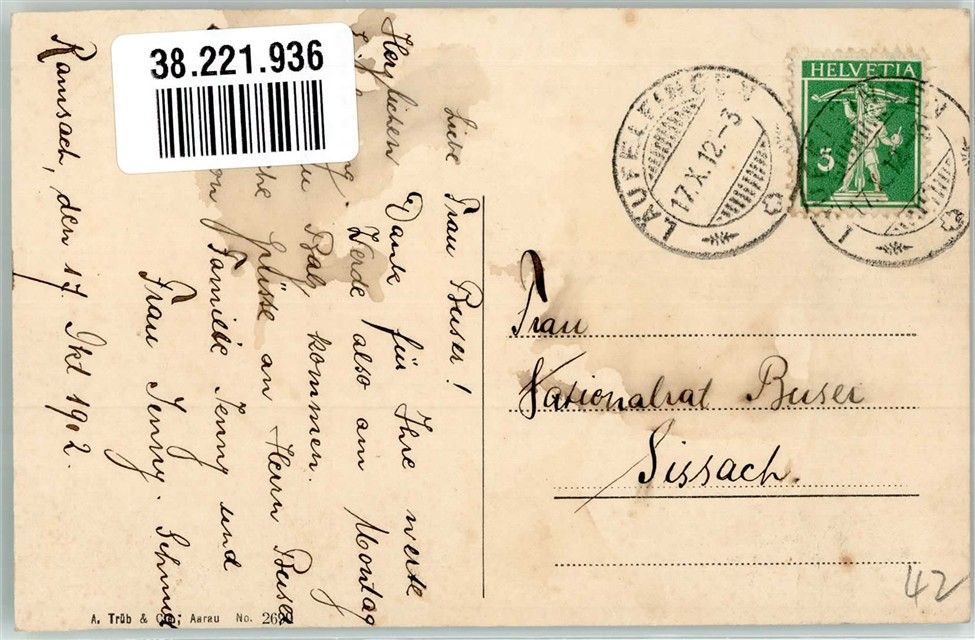 38.221.936
HELVETIA
5
LÄUFELFINGEN
17.X.12.-3
LÄUFELFINGEN
17.X.12.-3
Liebe Frau Buser!
Herzlichen Dank für Ihre werte
Werde also am Montag
Balz kommen.
Grüsse an Herrn Buser
von Familie Jenny und
Frau Jenny. Schmid
Ramsach, den 17. Okt 1912.
Frau
Nationalrat Buser
Sissach.
42
A. Trüb & Cie, Aarau No. 26